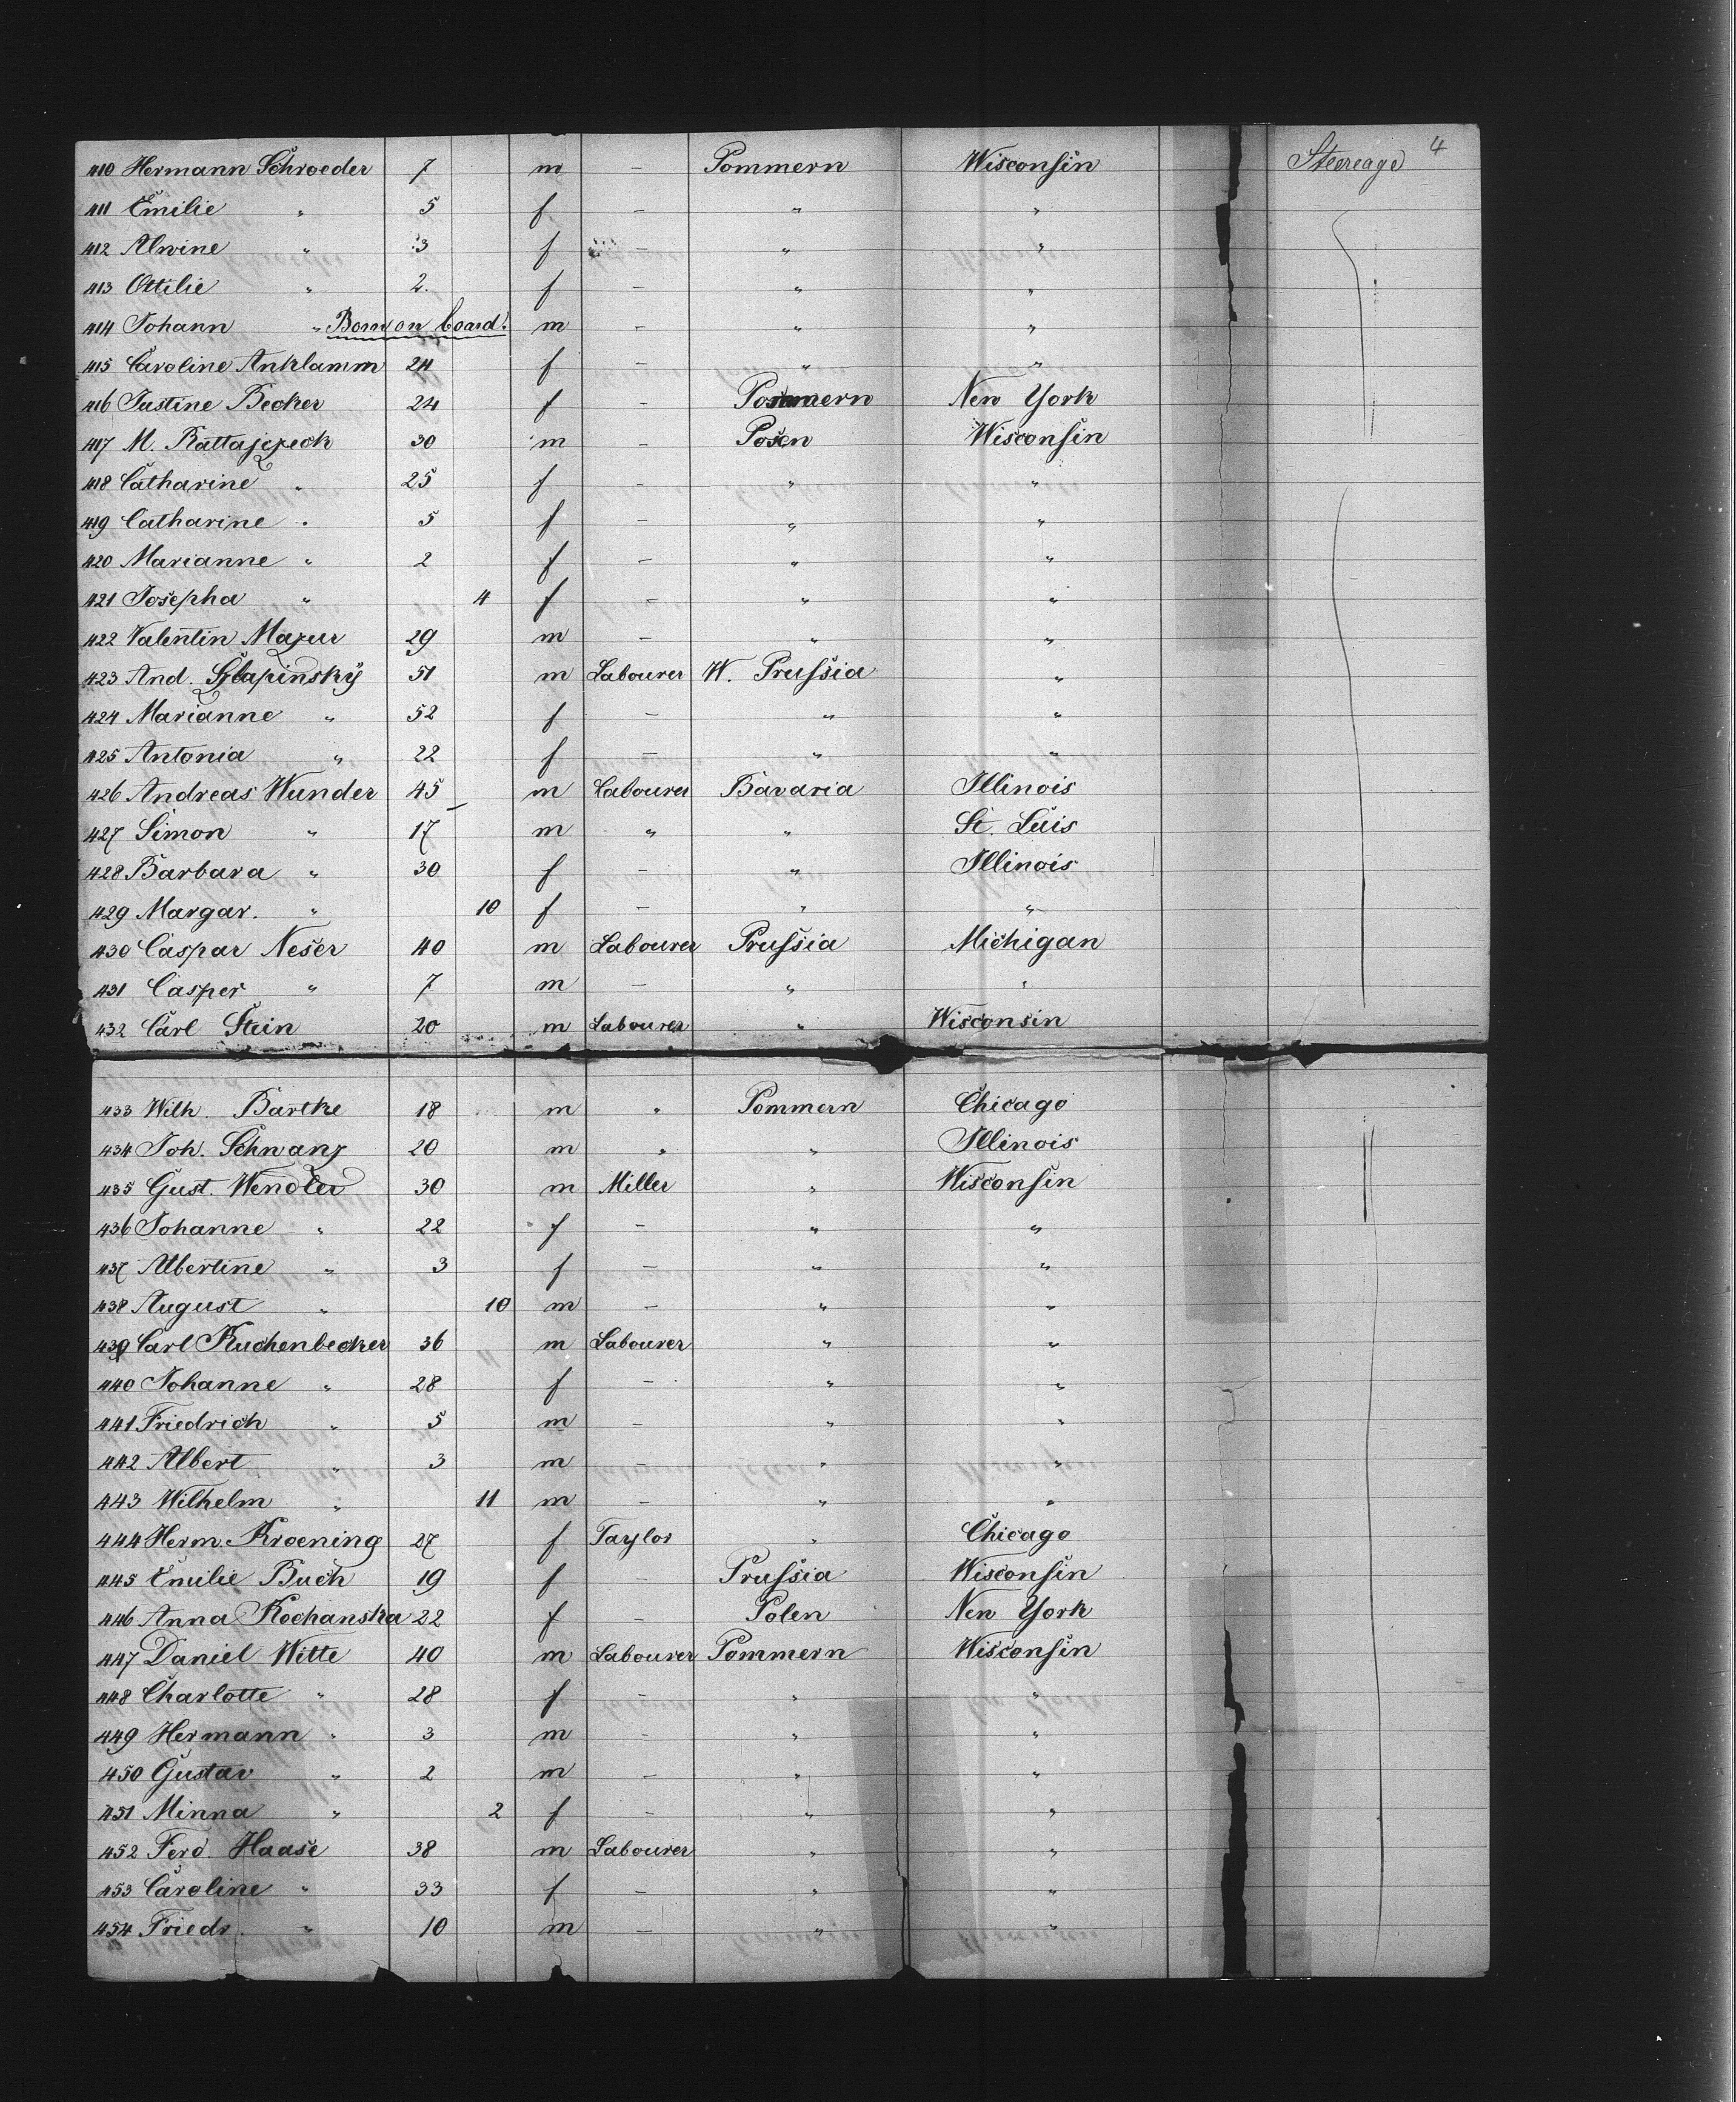 4
410 Hermann Schroeder 7 m - Pommern Wisconsin Steereage
411 Emilie " 5 f - " "
412 Alwine " 3 f - " "
413 Ottilie " 2. f - " "
414 Johann " Born on board. m - " "
415 Caroline Anklamm 24 f - " "
416 Justine Becker 24 f - Pommern New York
417 M. Rattajczeck 30 m - Posen Wisconsin
418 Catharine " 25 f - " "
419 Catharine " 5 f - " "
420 Marianne " 2 f - " "
421 Josepha " 4 f - " "
422 Valentin Mazur 29 m - " "
423 And. Szlapinsky 51 m Labourer W. Prussia "
424 Marianne " 52 f - " "
425 Antonia " 22 f - " "
426 Andreas Wunder 45 m Labourer Bavaria Illinois
427 Simon " 17 m " " St. Luis
428 Barbara " 30 f - " Illinois
429 Margar. " 10 f - " "
430 Caspar Neser 40 m Labourer Prussia Michigan
431 Casper " 7 m - " "
432 Carl Stein 20 m Labourer " Wisconsin
433 Wilh. Bartke 18 m " Pommern Chicago
434 Joh. Schwanz 20 m " " Illinois
435 Gust. Wendler 30 m Miller " Wisconsin
436 Johanne " 22 f - " "
437 Albertine " 3 f - " "
438 August " 10 m - " "
439 Carl Kuchenbecker 36 m Labourer " "
440 Johanne " 28 f - " "
441 Friedrich " 5 m - " "
442 Albert " 3 m - " "
443 Wilhelm " 11 m - " "
444 Herm. Kroening 27 f Taylor " Chicago
445 Emilie Buch 19 f - Prussia Wisconsin
446 Anna Kochanska 22 f - Polen New York
447 Daniel Witte 40 m Labourer Pommern Wisconsin
448 Charlotte " 28 f - " "
449 Hermann " 3 m - " "
450 Gustav " 2 m - " "
451 Minna " 2 f - " "
452 Ferd. Haase 38 m Labourer " "
453 Caroline " 33 f - " "
454 Friedr. " 10 m - " "